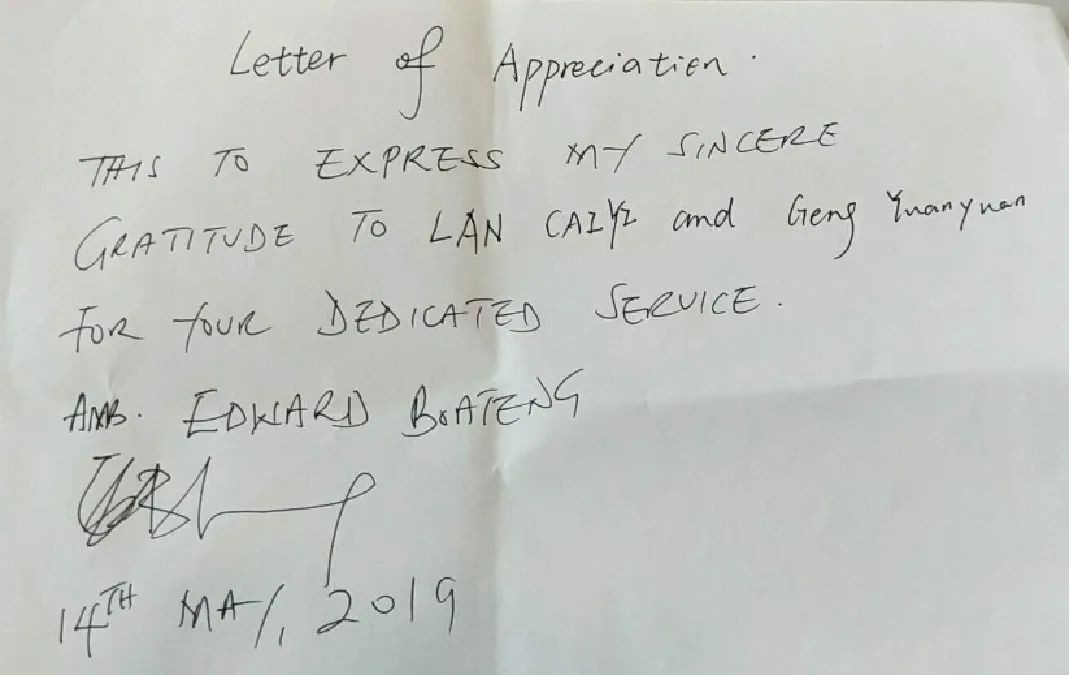 Letter of Appreciation.
THIS TO EXPRESS MY SINCERE
GRATITUDE TO LAN CAIYI and Geng Yuanyuan
FOR YOUR DEDICATED SERVICE.
AMB. EDWARD BOATENG
14TH MAY, 2019